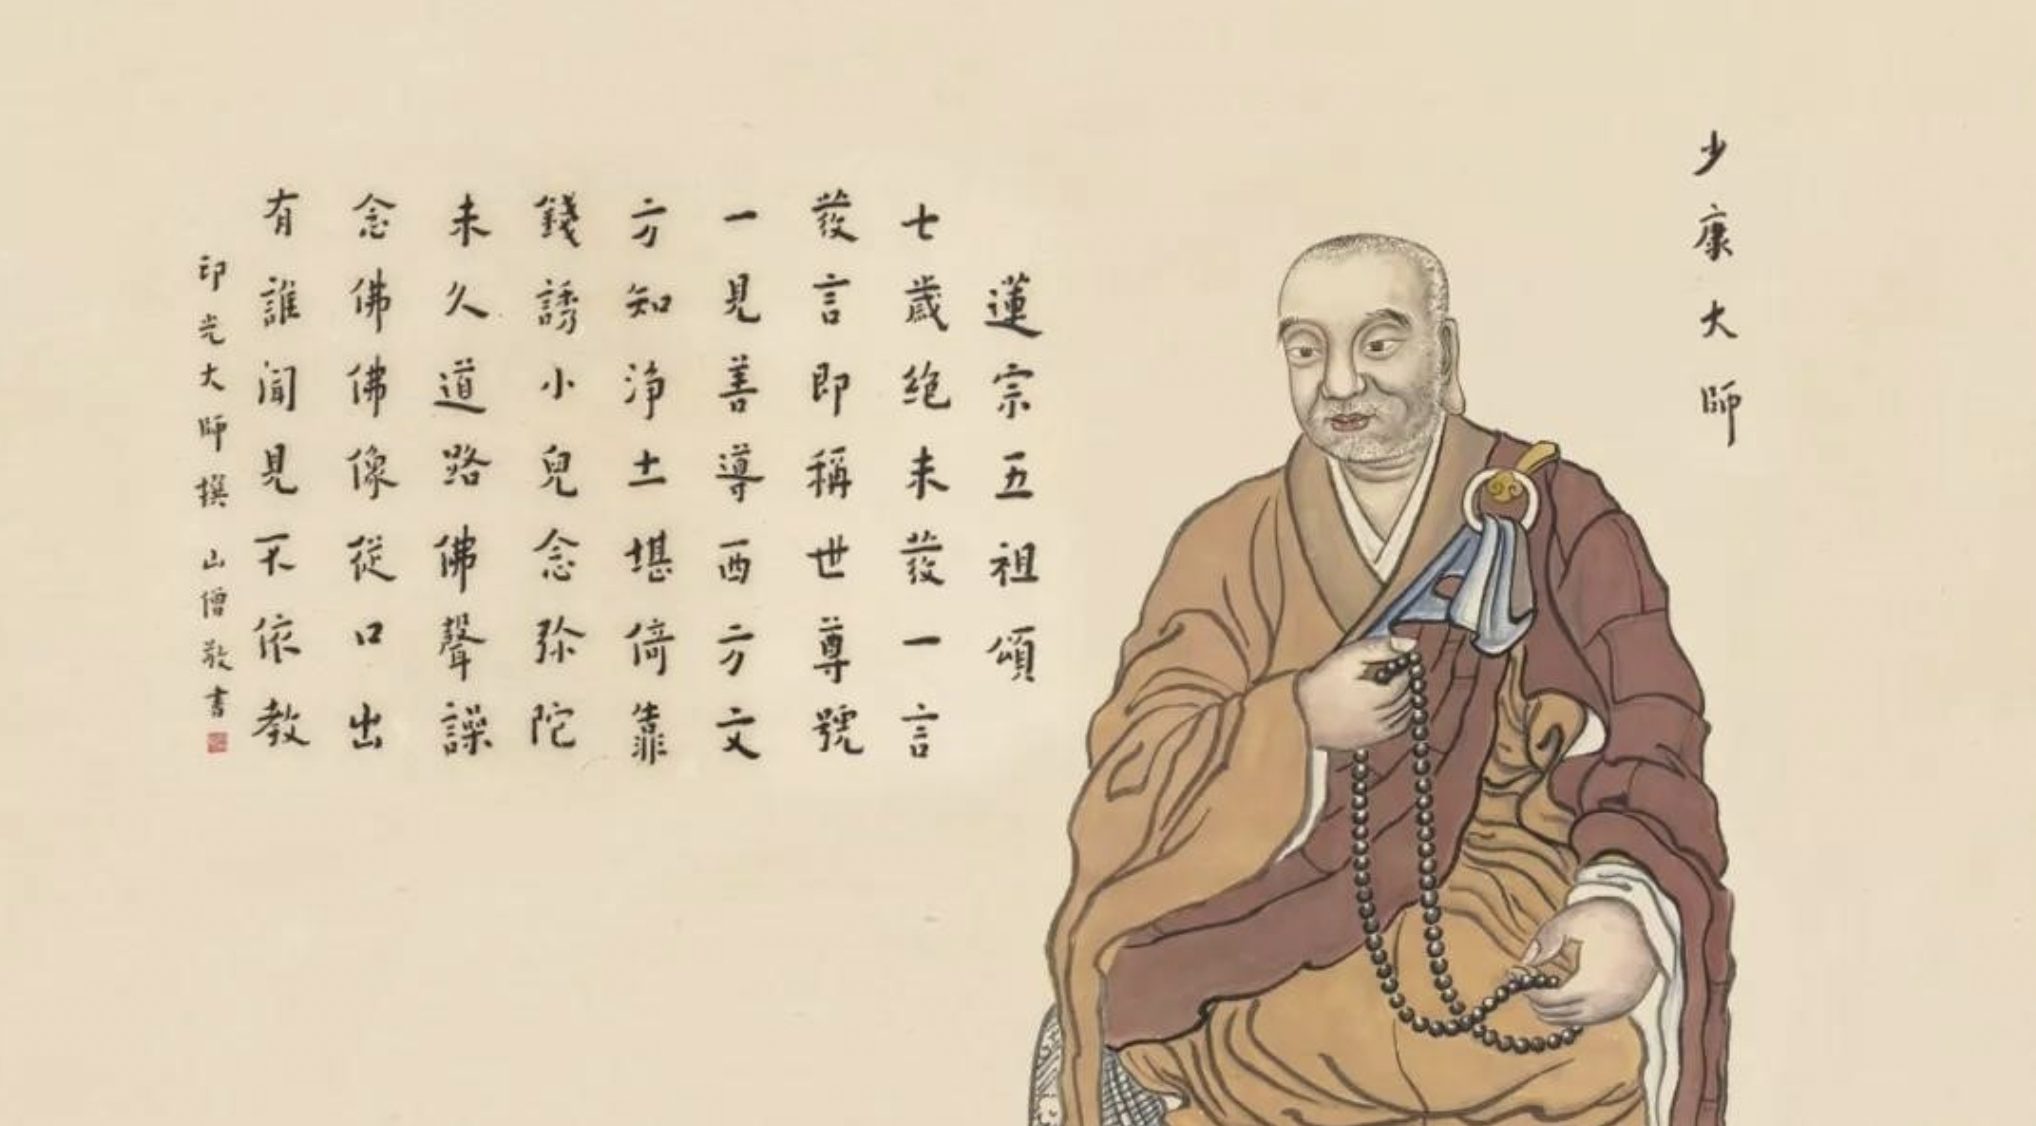 少康大師
蓮宗五祖頌
七歲絶未發一言
發言即稱世尊號
一見善導西方文
方知淨土堪倚靠
錢誘小兒念弥陀
未久道路佛聲譟
念佛佛像從口出
有誰聞見不依教
印光大師撰 山僧敬書